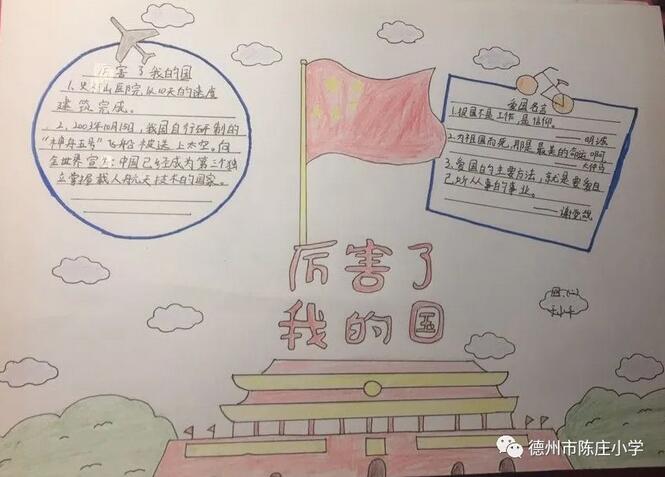 厉害了我的国
1、火神山医院,以10天的速度
建筑完成。
2、2003年10月15日,我国自行研制的
“神舟五号”飞船被送上太空。向
全世界宣告:中国已经成为第三个独
立掌握载人航天技术的国家。
爱国名言
1.祖国不是工作,是信仰。
2.为祖国而死,那是最美的命运啊
——大仲马
3.爱国的主要方法,就是要爱自
己所从事的事业。
——谢觉哉
厉害了
我的国
德州市陈庄小学